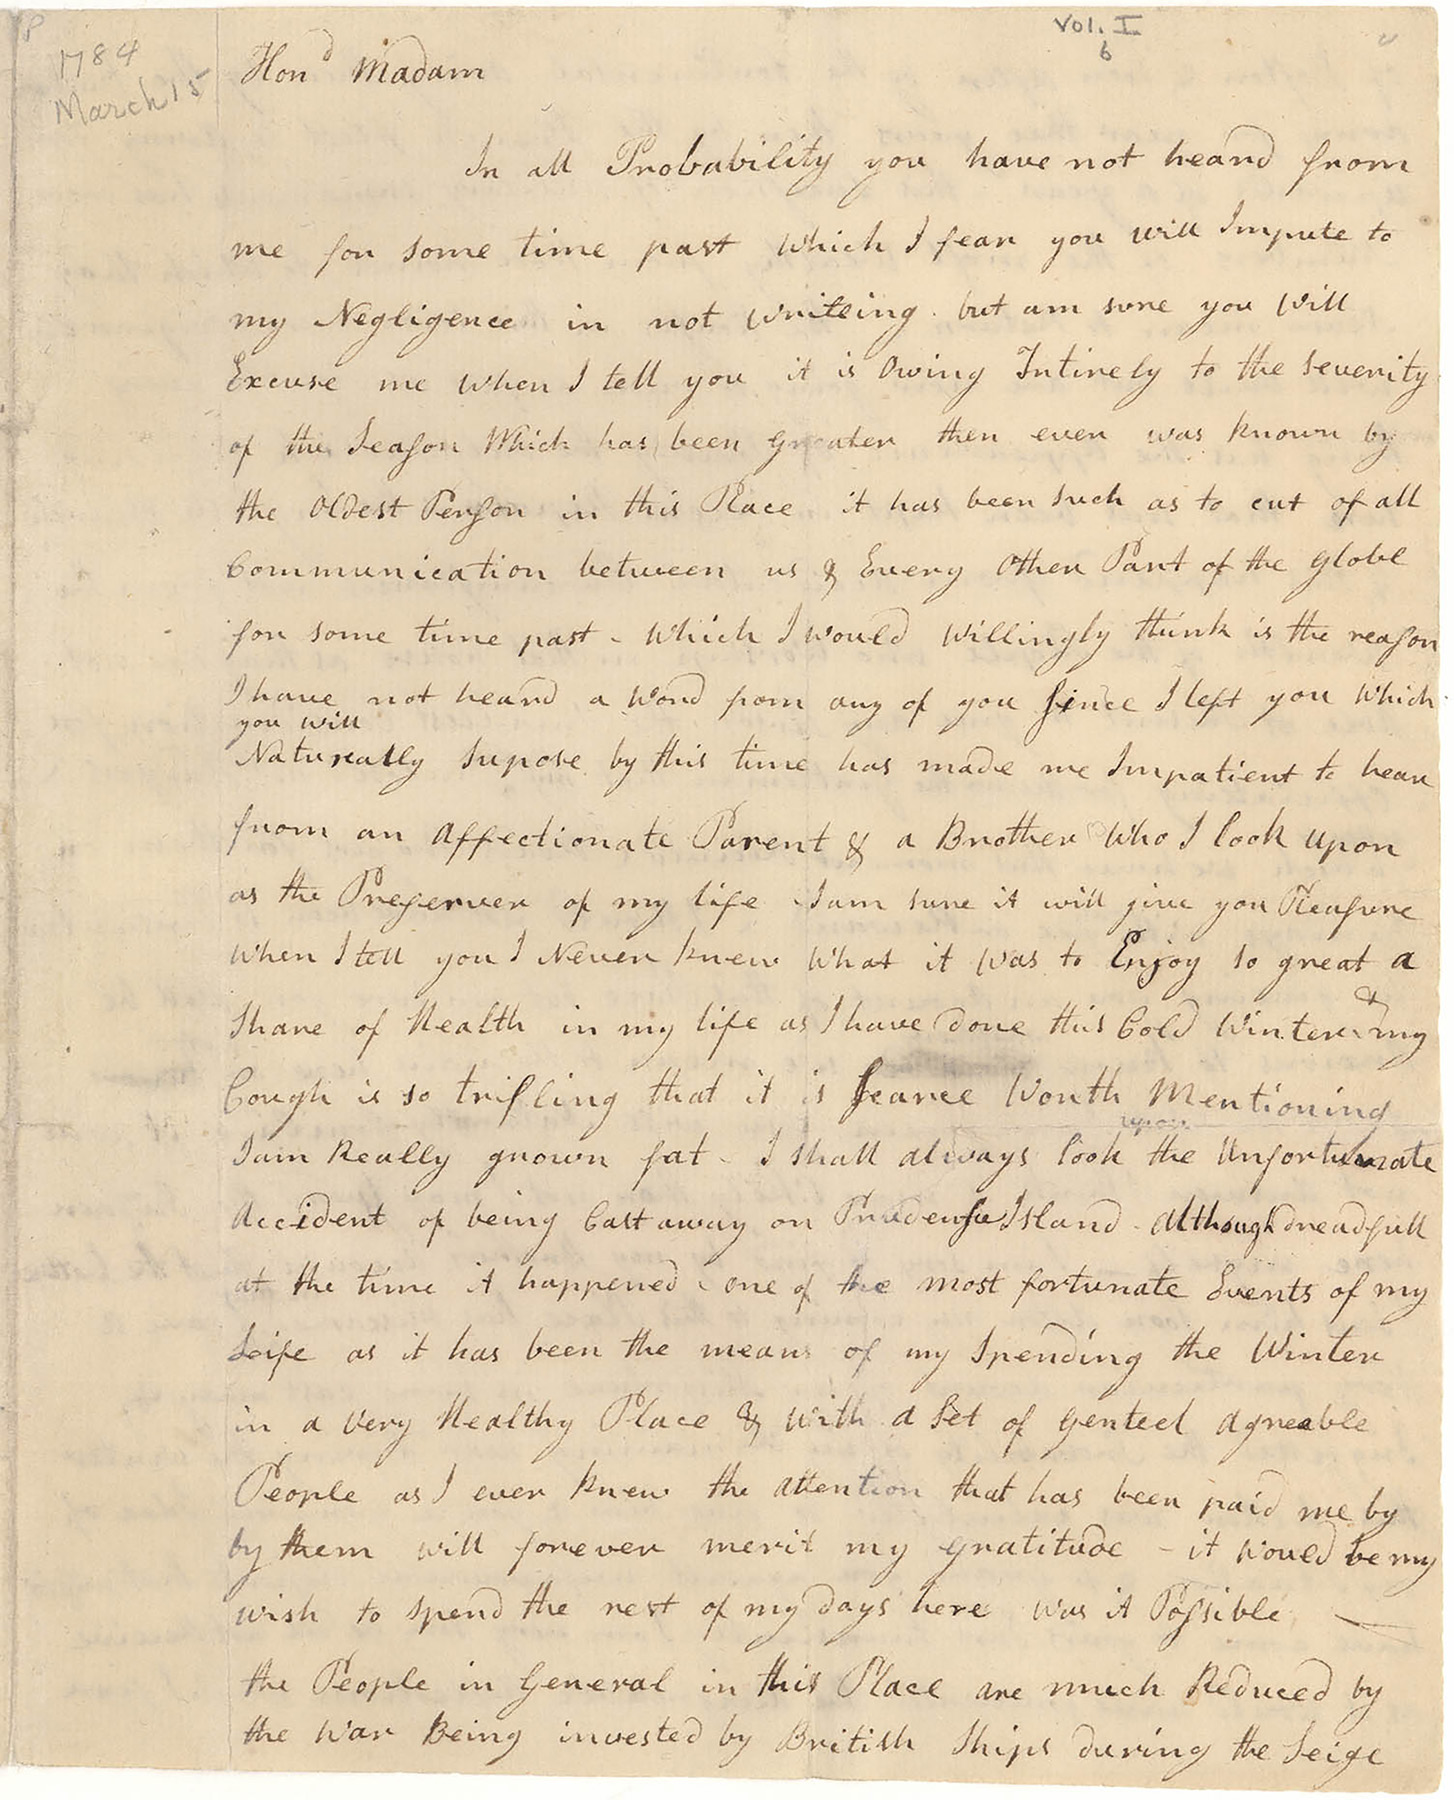 Vol. I
6
1784
March 15
Hond Madam
In all Probability you have not heard from
me for some time past which I fear you will Impute to
my Negligence in not writeing but am sure you Will
Excuse me when I tell you it is Owing Intirely to the severity
of the Season Which has been Greater then ever was known by
the Oldest Person in this Place it has been such as to cut of all
Communication between us & Every Other Part of the Globe
for some time past - which I would willingly think is the reason
I have not heard a Word from any of you Since I left you which
you will
Natureally Supose by this time has made me Impatient to hear
from an Affectionate Parent & a Brother Who I look Upon
as the Preserver of my life I am sure it will give you Pleasure
when I tell you I Never knew What it was to Enjoy so great a
Share of Health in my life as I have done this Cold Winter &
my
Cough is so trifling that it is Scarce Worth Mentioning
I am Really grown fat - I shall always look upon the Unfortunate
Accident of being Cast away on Prudence Island - although dreadfull
at the time it happened - one of the most fortunate Events of my
Life as it has been the means of my Spending the Winter
in a Very Healthy Place & with a Set of Genteel Agreable
People as I ever knew the attention that has been paid me by
by them will forever merit my Gratitude - it Would be my
wish to spend the rest of my days here was it Possible
the People in General in this Place are much Reduced by
the War Being invested by British Ships during the Seige